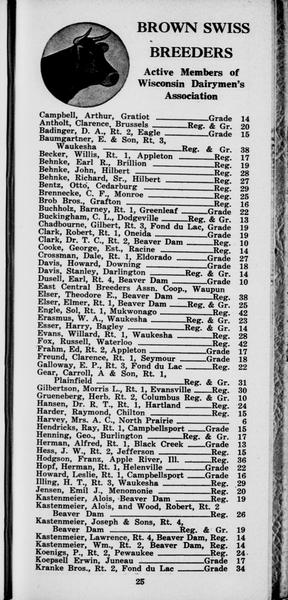 BROWN SWISS
BREEDERS
Active Members of
Wisconsin Dairymen's
Association
Campbell, Arthur, Gratiot Grade 14
Antholt, Clarence, Brussels Reg. & Gr. 20
Badinger, D. A., Rt. 2, Eagle Grade 15
Baumgartner, E. & Son, Rt. 3,
Waukesha Reg. & Gr. 38
Becker, Willis, Rt. 1, Appleton Reg. 17
Behnke, Earl R., Brillion Reg. 19
Behnke, John, Hilbert Reg. 28
Behnke, Richard, Sr., Hilbert Reg. 27
Bentz, Otto, Cedarburg Reg. 29
Brennecke, C. F., Monroe Reg. 25
Brob Bros., Grafton Reg. 16
Buchholz, Barney, Rt. 1, Greenleaf Grade 22
Buckingham, C. L., Dodgeville Reg. & Gr. 13
Chadbourne, Gilbert, Rt. 3, Fond du Lac, Grade 19
Clark, Robert, Rt. 1, Oneida Grade 19
Clark, Dr. T. C., Rt. 2, Beaver Dam Reg. 10
Cooke, George, Est., Racine Reg. 14
Crossman, Dale, Rt. 1, Eldorado Grade 27
Davis, Howard, Downing Grade 18
Davis, Stanley, Darlington Reg. & Gr. 14
Dusell, Earl, Rt. 4, Beaver Dam Grade 10
East Central Breeders Assn. Coop., Waupun
Elser, Theodore E., Beaver Dam Reg. 38
Elser, Elmer, Rt. 1, Beaver Dam Reg. & Gr. 25
Engle, Sol, Rt. 1, Mukwonago Reg. 42
Erasmus, W. A., Waukesha Reg. & Gr. 23
Esser, Harry, Bagley Reg. & Gr. 14
Evans, Willard, Rt. 1, Waukesha Reg. 28
Fox, Russell, Waterloo Reg. 42
Frahm, Ed, Rt. 2, Appleton Grade 17
Freund, Clarence, Rt. 1, Seymour Grade 18
Galloway, E. P., Rt. 3, Fond du Lac Reg. 22
Gear, Carroll, A & Son, Rt. 1,
Plainfield Reg. & Gr. 31
Gilbertson, Morris L., Rt. 1, Evansville Reg. 30
Grueneberg, Herb, Rt. 2, Columbus Reg. & Gr. 10
Hansen, Dr. R. T., Rt. 1, Hartland Reg. 24
Harder, Raymond, Chilton Reg. 15
Harvey, Mrs. A. C., North Prairie 6
Hendricks, Ray, Rt. 1, Campbellsport Grade 15
Henning, Geo., Burlington Reg. & Gr. 17
Herman, Alfred, Rt. 1, Black Creek Grade 13
Hess, J. W., Rt. 2, Jefferson Reg. 15
Hodgson, Franz, Apple River, Ill. Reg. 36
Hopf, Herman, Rt. 1, Helenville Grade 22
Howard, Leslie, Rt. 1, Campbellsport Grade 16
Illing, H. T., Rt. 3, Waukesha Reg. 29
Jensen, Emil J., Menomonie Reg. 20
Kastenmeier, Alois, Beaver Dam Reg. 19
Kastenmeier, Alois, and Wood, Robert, Rt. 2
Beaver Dam Reg. 26
Kastenmeier, Joseph & Sons, Rt. 4,
Beaver Dam Reg. & Gr. 19
Kastenmeier, Lawrence, Rt. 4, Beaver Dam, Reg. 14
Kastenmeier, Wm., Rt. 2, Beaver Dam, Reg. 14
Koenigs, P., Rt. 2, Pewaukee Reg. 24
Koepsell Erwin, Juneau Grade 17
Kranke Bros., Rt. 2, Fond du Lac Grade 34
25